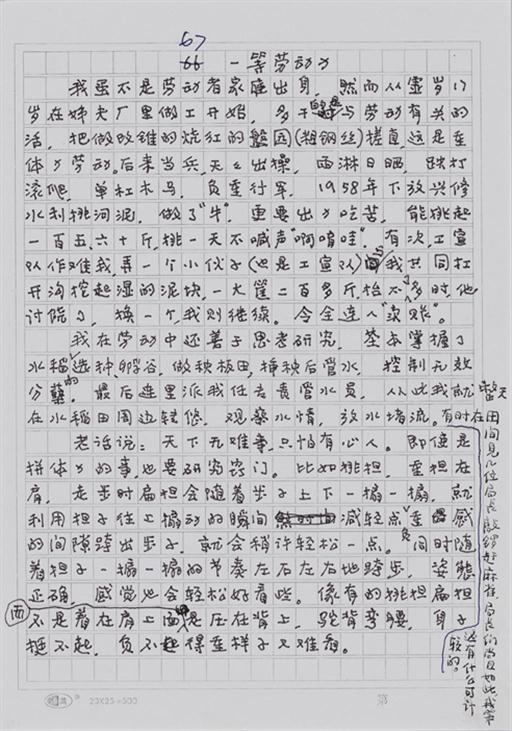 67
66 一等劳动力
我虽不是劳动者家庭出身，然而从虚岁17
岁在姊夫厂里做工开始，多干的是与劳动有关的
活，把做改锥的烧红的盘圆(粗钢丝)搓直，这是重
体力劳动。后来当兵，天天出操，雨淋日晒，跌打
滚爬，单杠木马，负重行军，1958年下放兴修
水利挑河泥，做了"牛"，更要出力吃苦，能挑起
一百五、六十斤，挑一天不喊声"啊唷哇"。有次，工宣
队作难我，弄一个小伙子(也是工宣队)与我共同扛
开沟挖起湿的泥块，一大筐二百多斤，抬不多时，他
讨饶了，换一个，我则继续。令全连人"哀败"。
我在劳动中还善于思考研究，基本掌握了
水稻选种、孵谷，做秧板田，插秧后管水，控制无效
分蘖的。最后连里派我任专责管水员，从此我就整天
在水稻田周边转悠，观察水情，放水堵流。有时在田
间见几位局长敲绑好麻桩，局长们尚且如此，我辈
还有什么可计
较的。
老话说：天下无难事，只怕有心人。即使是
拼体力的事，也要研究窍门。比如挑担，重担在
肩，走步时扁担会随着步子上下一搧一搧，就
利用担子往上搧动的瞬间减轻点重感
的间隙跨出步子，就会稍许轻松一点。同时随
着担子一搧一搧的节奏左右左右地跨步，姿态
正确，感觉也会轻松好看些。像有的挑担扁担
不是着在肩上面而是压在背上，驼背弯腰，身子
挺不起，负不起得重样子又难看。
20X25=500
第